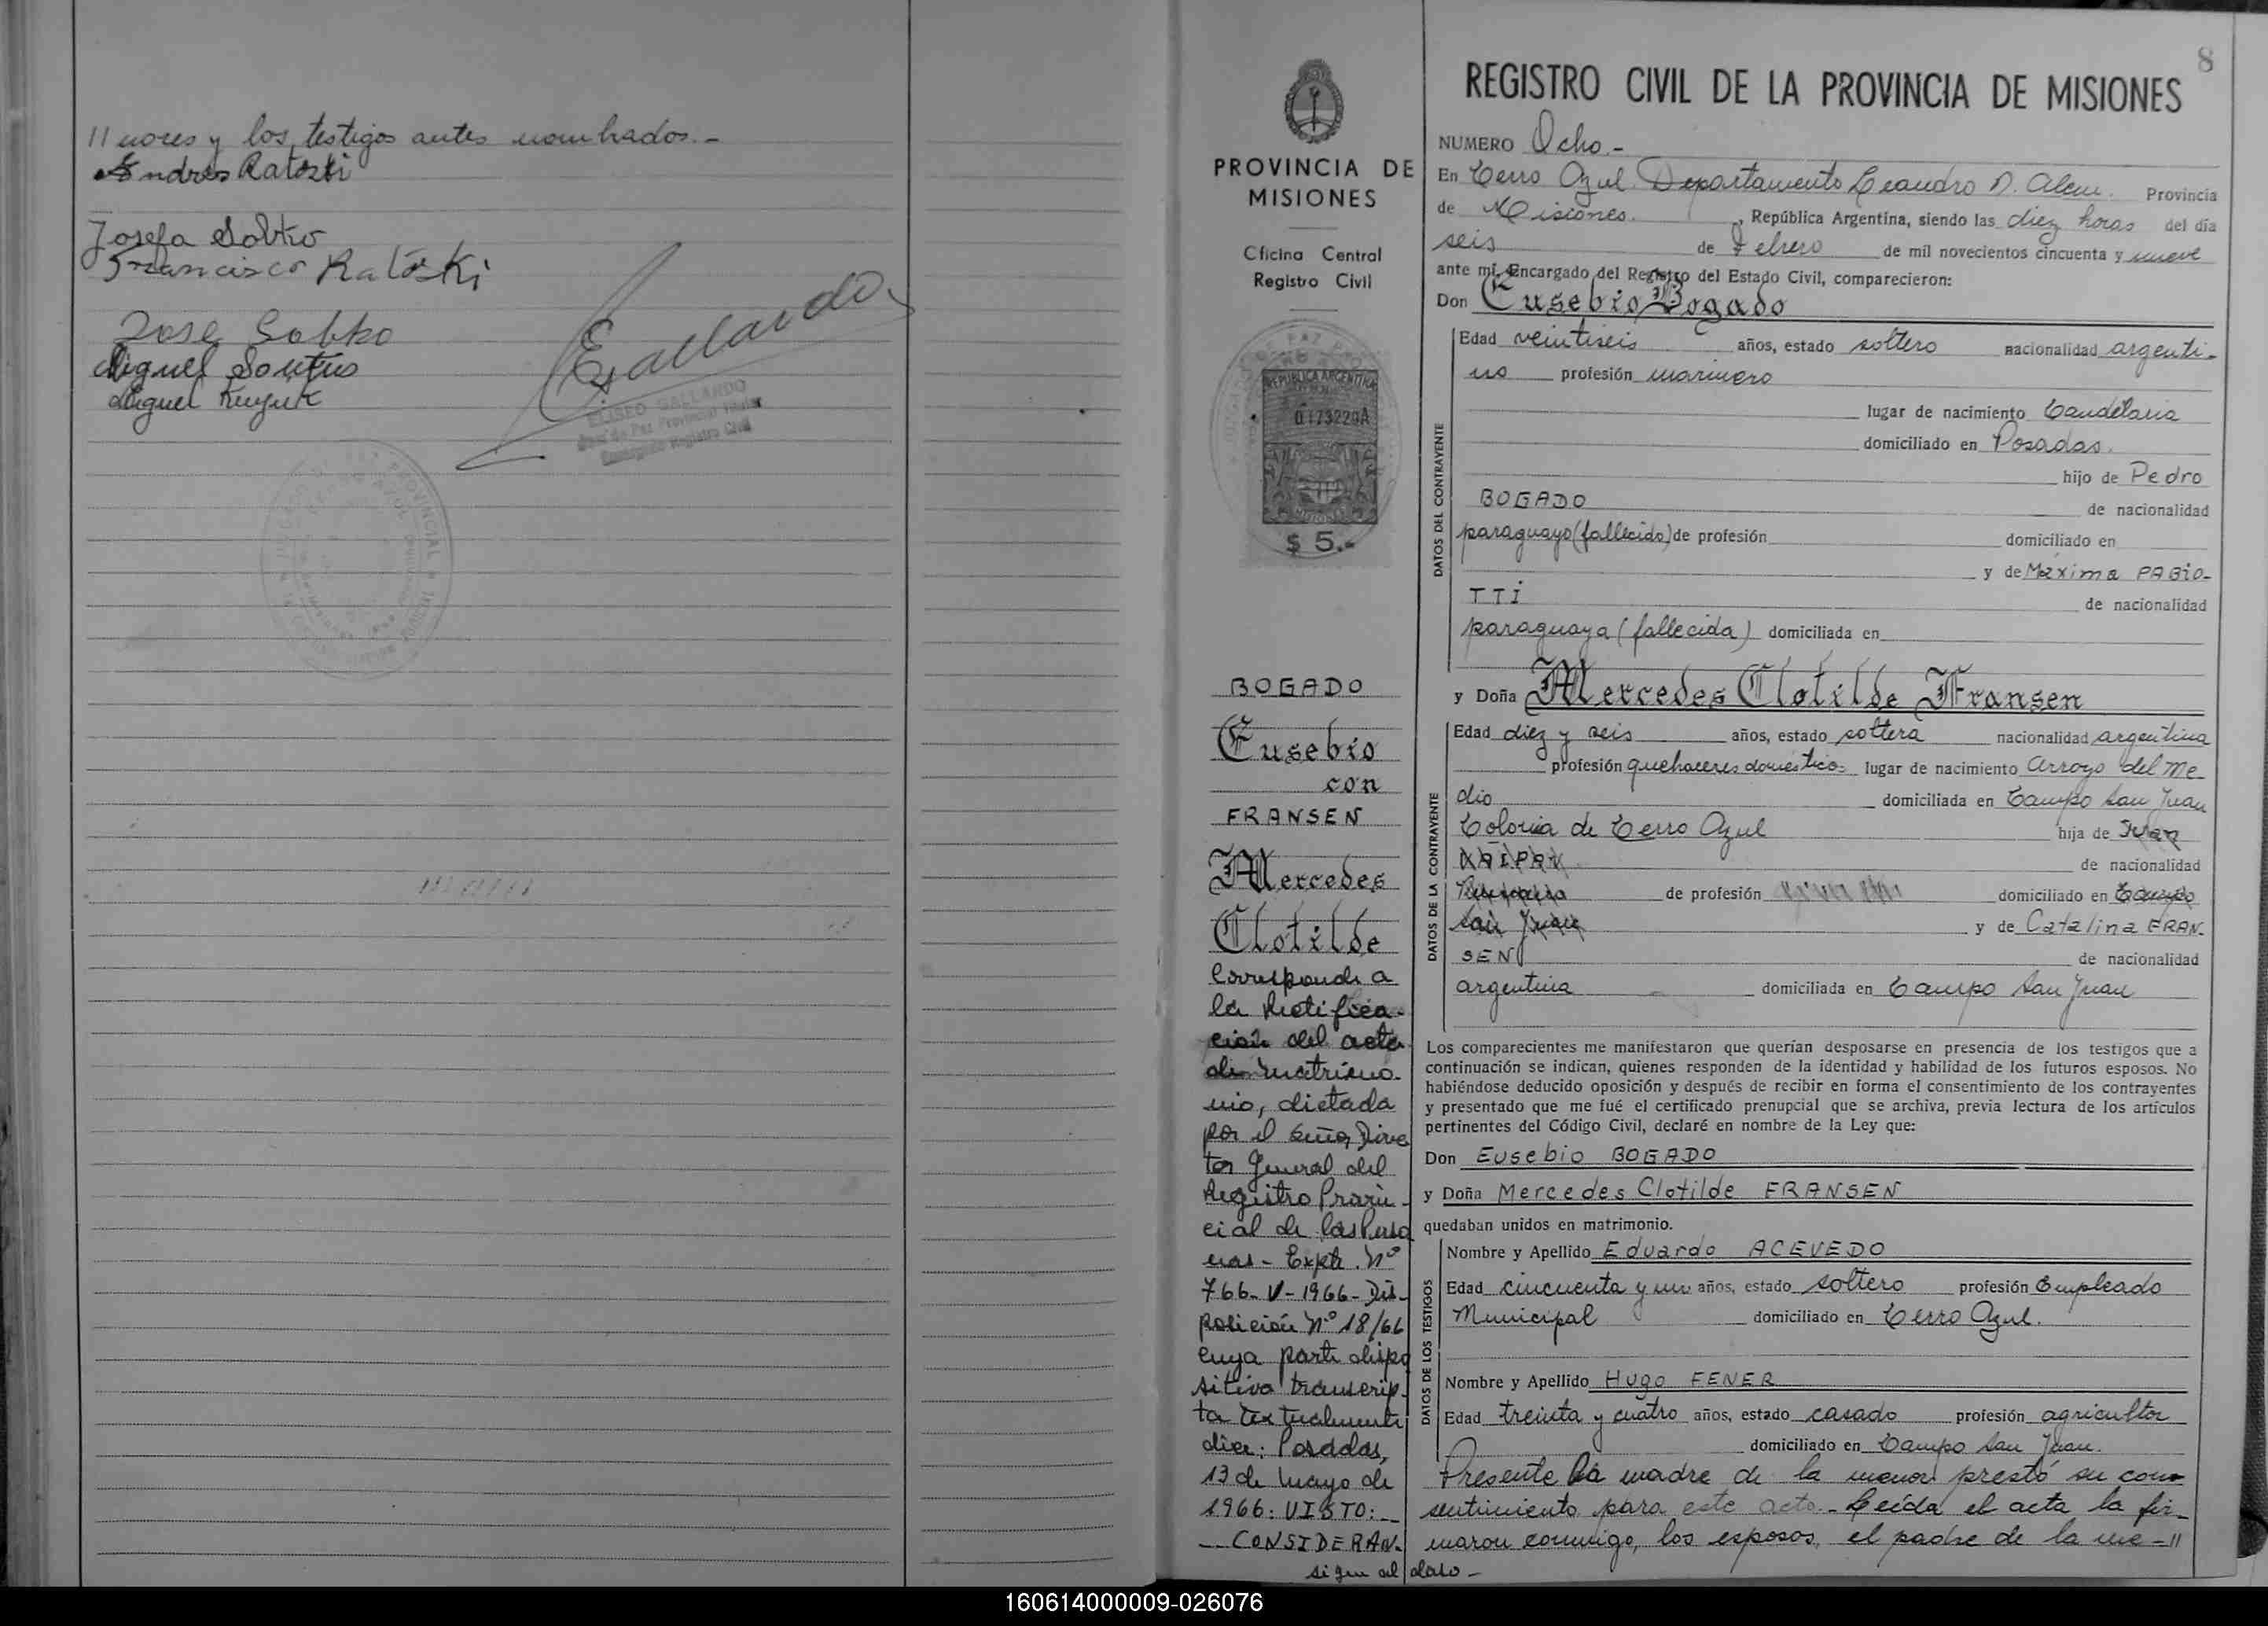 //nores y los testigos antes nombrados.-
Andrés Ratoski
Josefa Sobko
Francisco Ratoski
Jose Sobko
Miguel
Miguel
EGallardo
ELISEO GALLARDO
Juez de Paz Provincial Titular
Encargado Registro Civil
PROVINCIAL
8
REGISTRO CIVIL DE LA PROVINCIA DE MISIONES
PROVINCIA DE
MISIONES
Oficina Central
Registro Civil
REPUBLICA ARGENTINA
0173220A
MISIONES
$ 5.-
BOGADO
Eusebio
con
FRANSEN
Mercedes
Clotilde
Corresponde a
la Rectifica-
ción del acta
de matrimo-
nio, dictada
por el señor Direc
tor General del
Registro Provin-
cial de las Perso
nas - Expte. Nº
766-V-1966- Dis-
posición Nº 18/66
cuya parte dispo
sitiva transcrip-
ta textualmente
dice: Posadas,
13 de Mayo de
1966: VISTO:--
-- CONSIDERAN-
sigue al dorso -
NUMERO Ocho.-
En Cerro Azul. Departamento Leandro N. Alem. Provincia
de Misiones. , República Argentina, siendo las diez horas del día
seis de Febrero de mil novecientos cincuenta y nueve
ante mí, Encargado del Registro del Estado Civil, comparecieron:
Don Eusebio Bogado
DATOS DEL CONTRAYENTE
Edad veintiseis años, estado soltero nacionalidad argenti-
no profesión marinero
lugar de nacimiento Candelaria
domiciliado en Posadas.
hijo de Pedro
BOGADO de nacionalidad
paraguayo (fallecido) de profesión domiciliado en
y de Máxima PABIO-
TTI de nacionalidad
paraguaya (fallecida) domiciliada en
y Doña Mercedes Clotilde Fransen
DATOS DE LA CONTRAYENTE
Edad diez y seis años, estado soltera nacionalidad argentina
profesión quehaceres domésticos lugar de nacimiento Arroyo del Me-
dio domiciliada en Campo San Juan
Colonia de Cerro Azul hija de Juan
de nacionalidad
de profesión domiciliado en Campo
San Juan y de Catalina FRAN-
SEN de nacionalidad
argentina domiciliada en Campo San Juan
Los comparecientes me manifestaron que querían desposarse en presencia de los testigos que a
continuación se indican, quienes responden de la identidad y habilidad de los futuros esposos. No
habiéndose deducido oposición y después de recibir en forma el consentimiento de los contrayentes
y presentado que me fué el certificado prenupcial que se archiva, previa lectura de los artículos
pertinentes del Código Civil, declaré en nombre de la Ley que:
Don Eusebio BOGADO
y Doña Mercedes Clotilde FRANSEN
quedaban unidos en matrimonio.
DATOS DE LOS TESTIGOS
Nombre y Apellido Eduardo ACEVEDO
Edad cincuenta y un años, estado soltero profesión Empleado
Municipal domiciliado en Cerro Azul.
Nombre y Apellido Hugo FENER
Edad treinta y cuatro años, estado casado profesión agricultor
domiciliado en Campo San Juan.
Presente la madre de la menor prestó su con-
sentimiento para este acto.- Leída el acta la fir-
maron conmigo, los esposos, el padre de la me-//
160614000009-026076